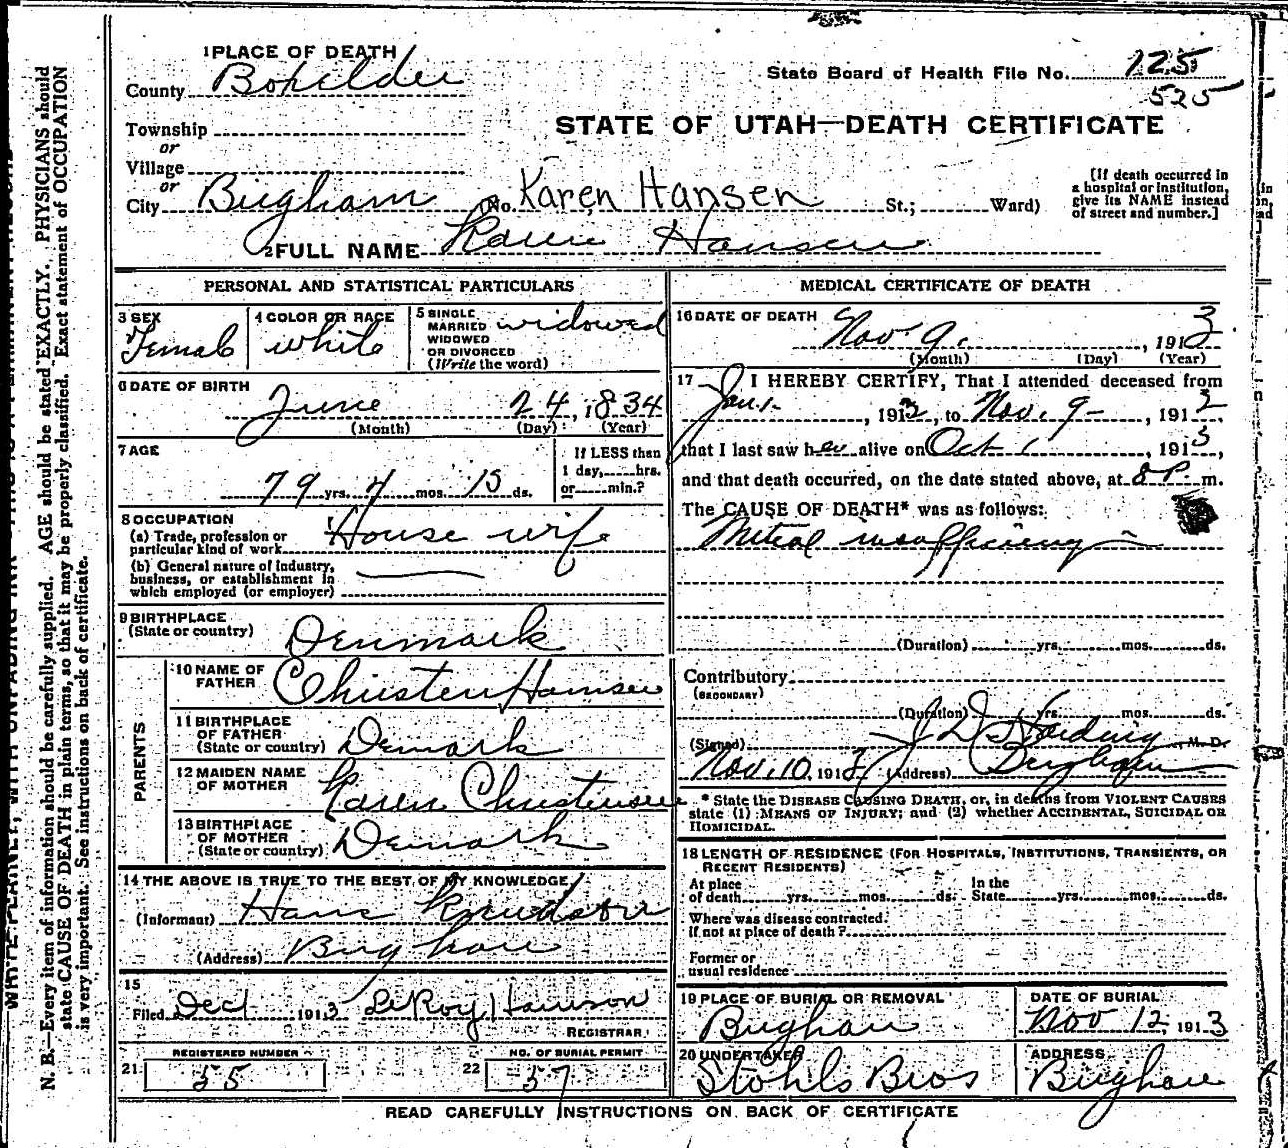 1 PLACE OF DEATH
County Boxelder
State Board of Health File No. 125
525
Township
or
Village
or
STATE OF UTAH—DEATH CERTIFICATE
City Brigham No. Karen Hansen St.; Ward)
[If death occurred in
a hospital or institution,
give its NAME instead
of street and number.]
2 FULL NAME Karen Hansen
PERSONAL AND STATISTICAL PARTICULARS
3 SEX
Femal
4 COLOR OR RACE
white
5 SINGLE
MARRIED
WIDOWED
OR DIVORCED
(Write the word)
widowed
6 DATE OF BIRTH
June 24, 1834
(Month) (Day) (Year)
7 AGE
79 yrs. 4 mos. 15 ds.
If LESS than
1 day, hrs.
or min.?
8 OCCUPATION
(a) Trade, profession or
particular kind of work House wife
(b) General nature of industry,
business, or establishment in
which employed (or employer)
9 BIRTHPLACE
(State or country) Denmark
PARENTS
10 NAME OF
FATHER Christen Hansen
11 BIRTHPLACE
OF FATHER
(State or country) Demark
12 MAIDEN NAME
OF MOTHER Karen Christensen
13 BIRTHPLACE
OF MOTHER
(State or country) Demark
14 THE ABOVE IS TRUE TO THE BEST OF MY KNOWLEDGE
(Informant) Hans
(Address) Brigham
15
Filed Dec 1 1913 LeRoy Hanson
REGISTRAR
REGISTERED NUMBER
21. 55
NO. OF BURIAL PERMIT
22 57
MEDICAL CERTIFICATE OF DEATH
16 DATE OF DEATH
Nov 9. , 1913
(Month) (Day) (Year)
17 I HEREBY CERTIFY, That I attended deceased from
Jan 1- , 1913, to Nov. 9- , 1913
that I last saw her alive on Oct 1 , 1913,
and that death occurred, on the date stated above, at 8 P. m.
The CAUSE OF DEATH* was as follows:
Mitral insufficiency
(Duration) yrs. mos. ds.
Contributory
(SECONDARY)
(Duration) yrs. mos. ds.
(Signed) J D Harding M. D.
Nov. 10, 1913 (Address) Brigham
* State the DISEASE CAUSING DEATH, or, in deaths from VIOLENT CAUSES
state (1) MEANS OF INJURY; and (2) whether ACCIDENTAL, SUICIDAL OR
HOMICIDAL.
18 LENGTH OF RESIDENCE (FOR HOSPITALS, INSTITUTIONS, TRANSIENTS, OR
RECENT RESIDENTS)
At place
of death yrs. mos. ds.
In the
State yrs. mos. ds.
Where was disease contracted.
if not at place of death?
Former or
usual residence
19 PLACE OF BURIAL OR REMOVAL
Brigham
DATE OF BURIAL
Nov 12, 1913
20 UNDERTAKER
Stohls Bros
ADDRESS
Brigham
READ CAREFULLY INSTRUCTIONS ON BACK OF CERTIFICATE
N. B.—Every item of information should be carefully supplied. AGE should be stated EXACTLY. PHYSICIANS should
state CAUSE OF DEATH in plain terms, so that it may be properly classified. Exact statement of OCCUPATION
is very important. See instructions on back of certificate.